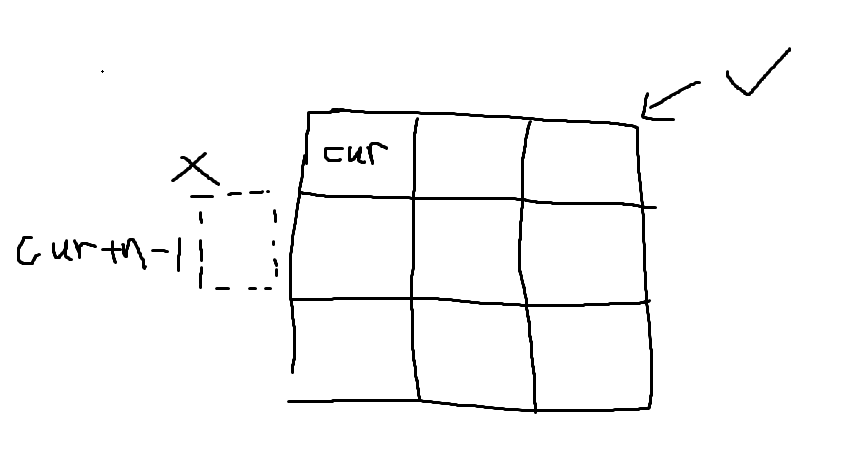 cur
cur+n-1